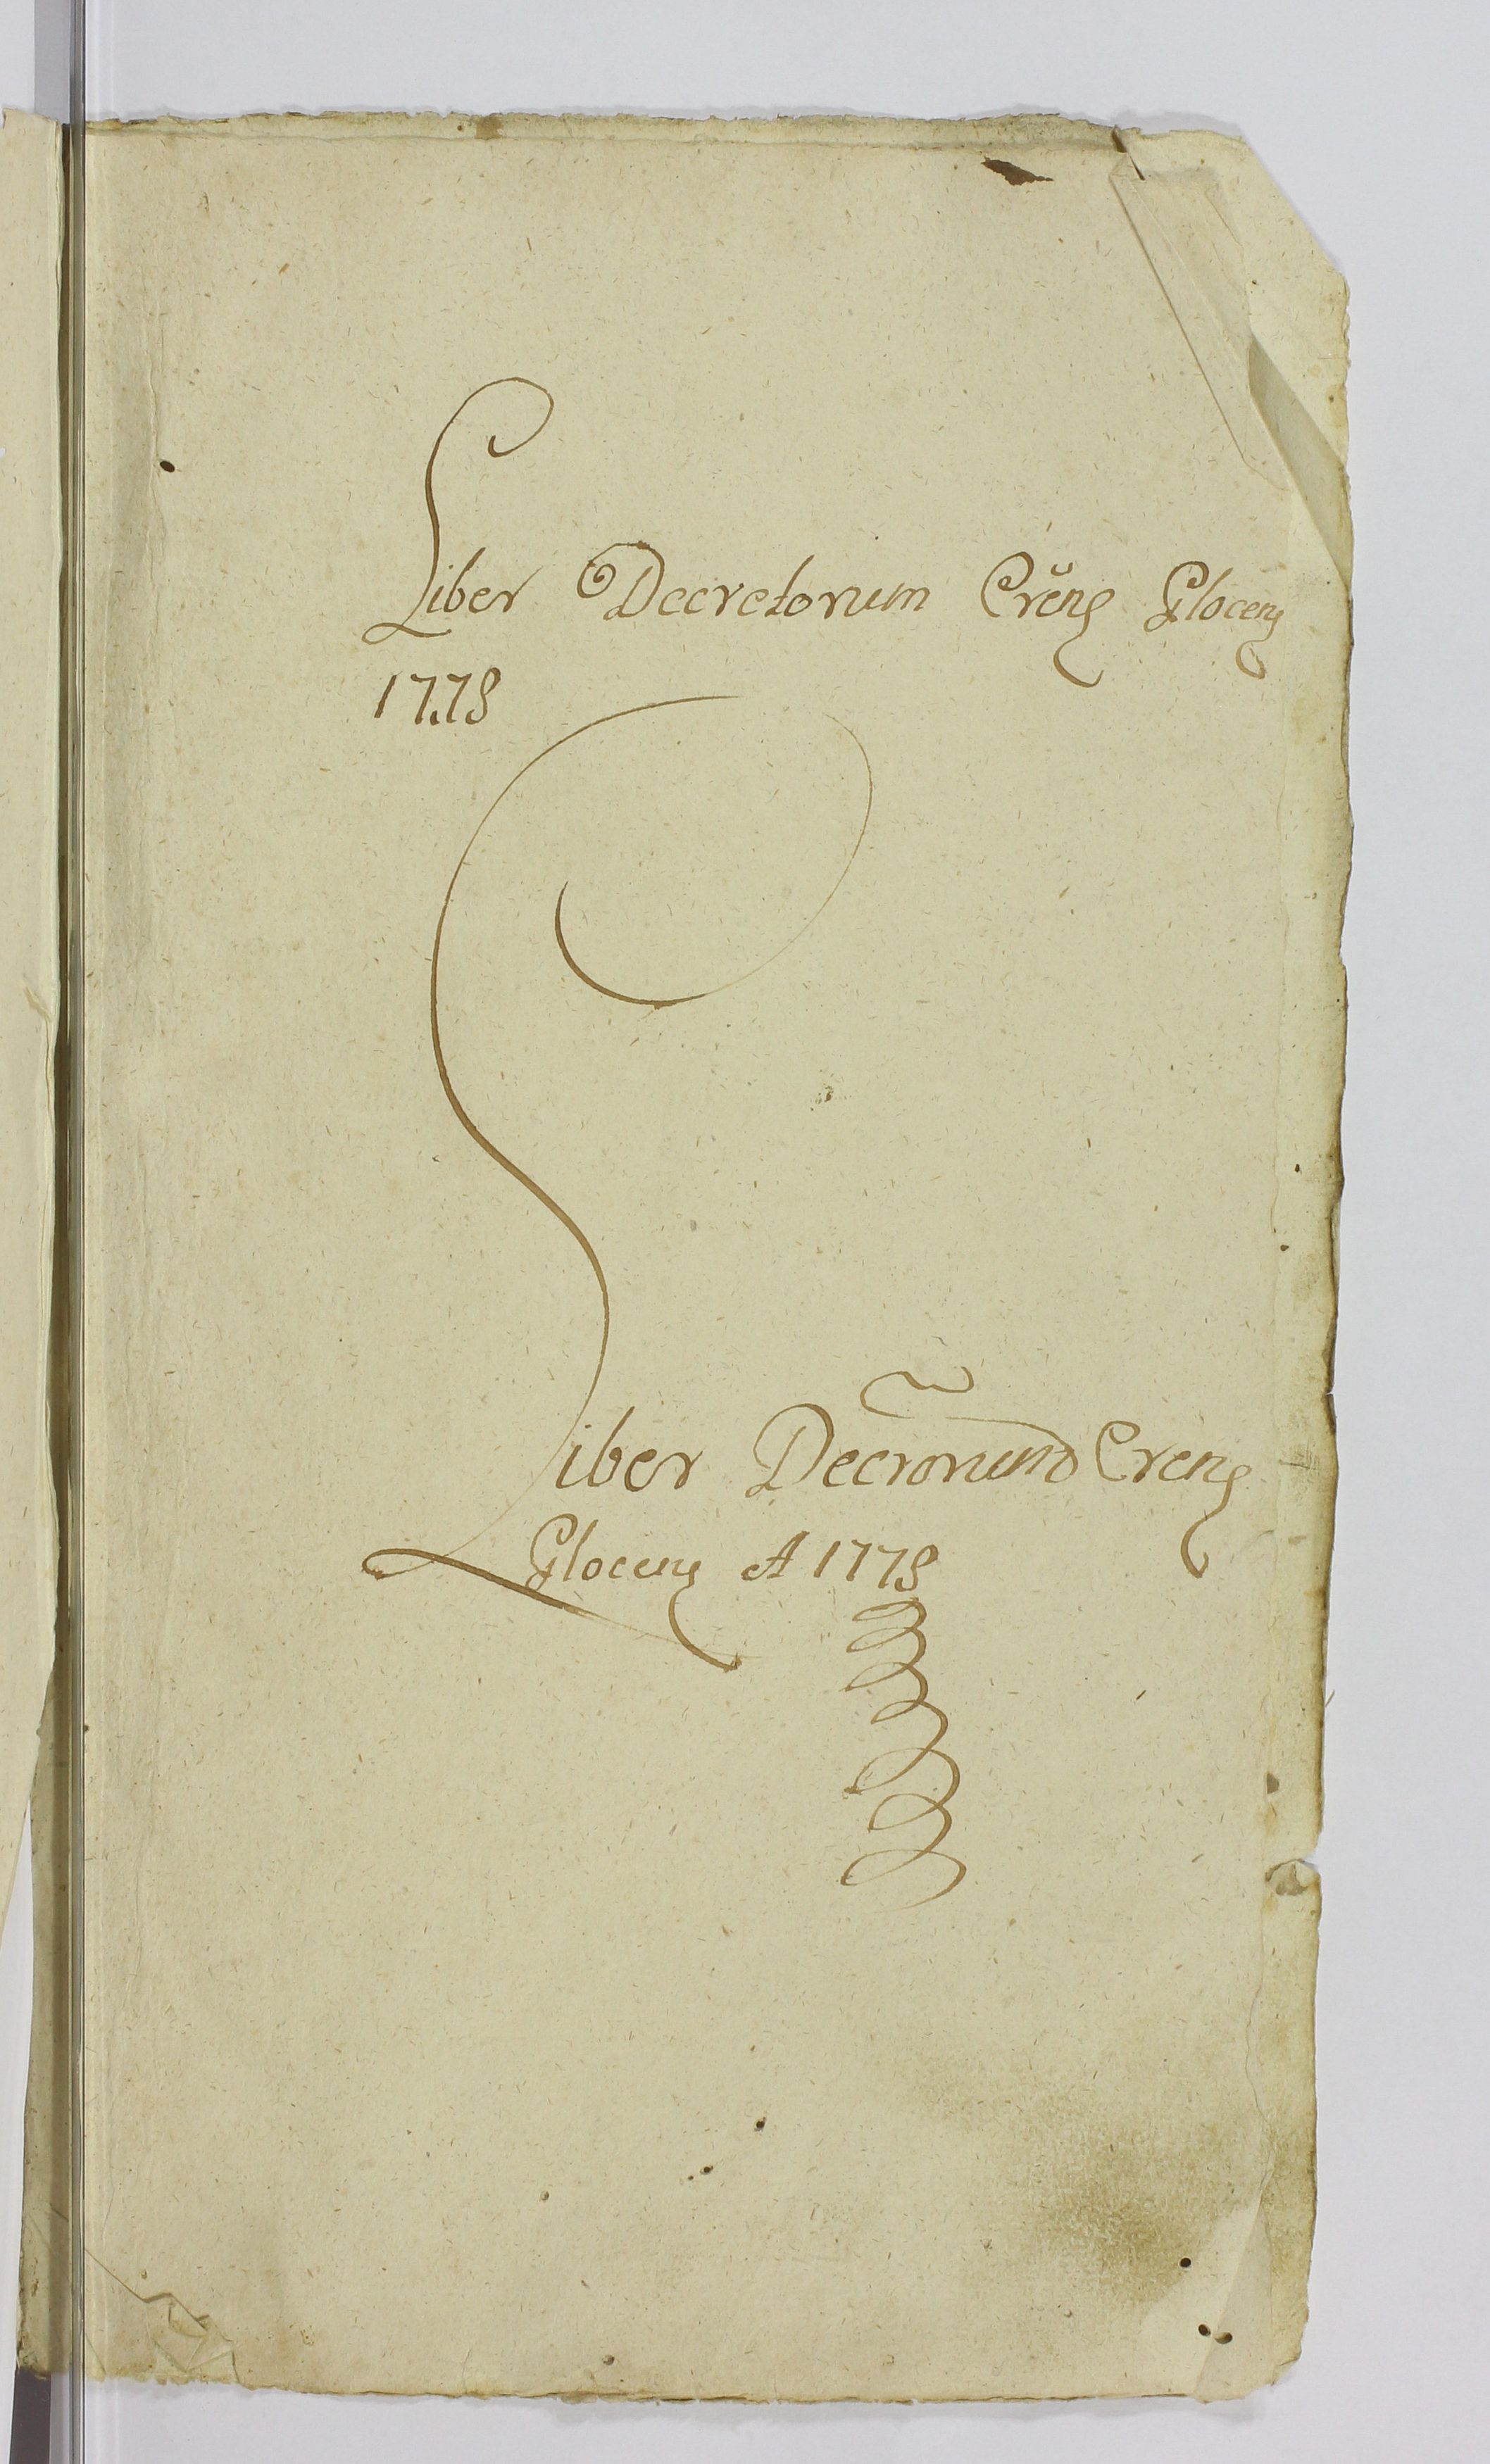 Liber Decretorum Crĕng Gloceng
1778
Liber Decrorum Creng
Gloceng A 1778